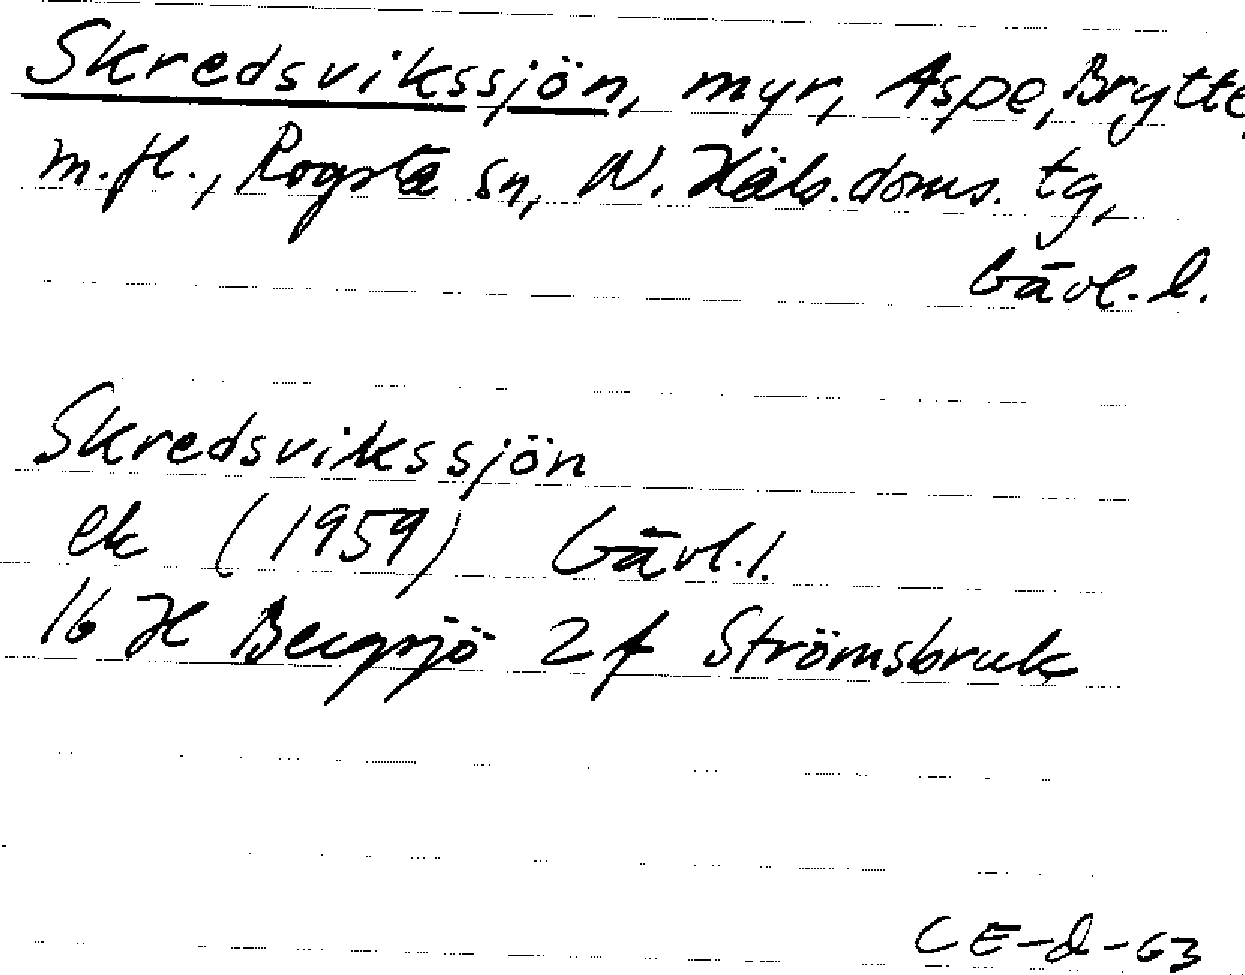 Skredsvikssjön, myr, Aspe, Brytte,
m.fl., Rogsta sn, N. Häls. doms. tg,
Gävl. l.
Skredsvikssjön
ek (1959) Gävl. l.
16 H Bergsjö 2f Strömsbruk
CE-d-63